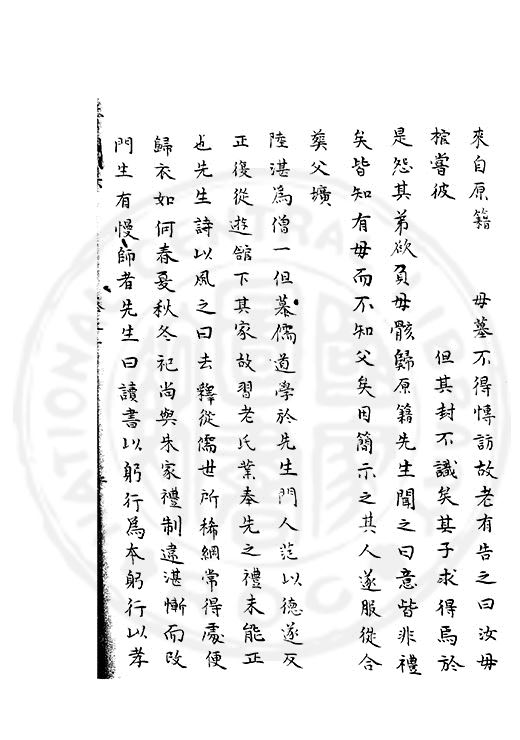 來自原籍　　　母墓不得慱訪故老有告之曰汝母
棺嘗彼　　　　　但其封不識矣其子求得焉於
是怨其弟欲負母骸歸原籍先生聞之曰意皆非禮
矣皆知有母而不知父矣因簡示之其人遂服從合
葬父壙
陸湛為僧一但慕儒道學於先生門人范以德遂反
正後從遊舘下其家故習老氏業奉先之禮未能正
也先生詩以風之曰去釋從儒世所稀綱常得處便
歸衣如何春夏秋冬祀尚與朱家禮制違湛慚而改
門生有慢師者先生曰讀書以躬行為本躬行以孝